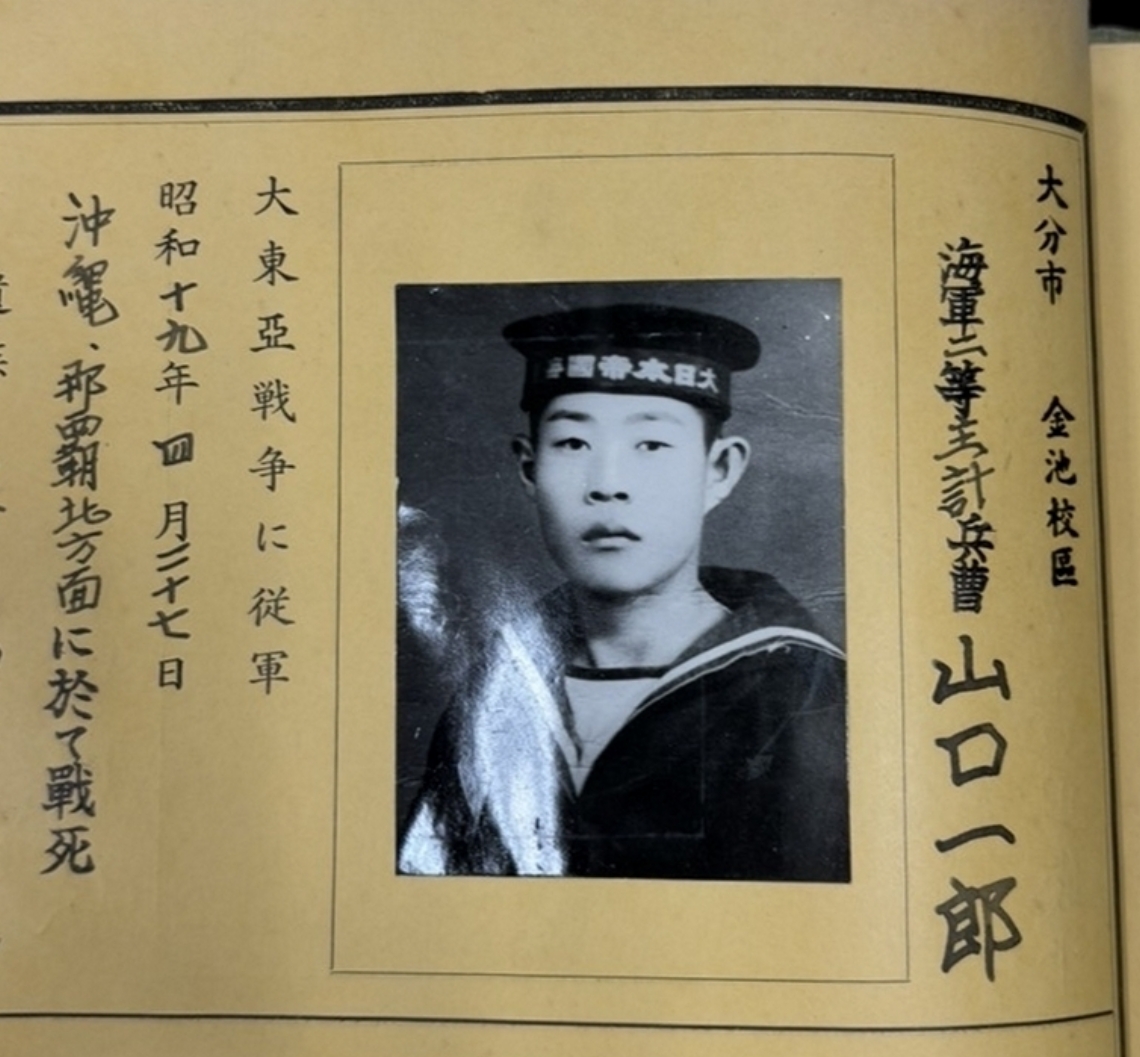 大分市 金池校區
海軍二等主計兵曹 山口一郎
大日本帝國海
大東亞戦争に従軍
昭和十九年四月二十七日
沖縄、那覇北方面に於て戰死